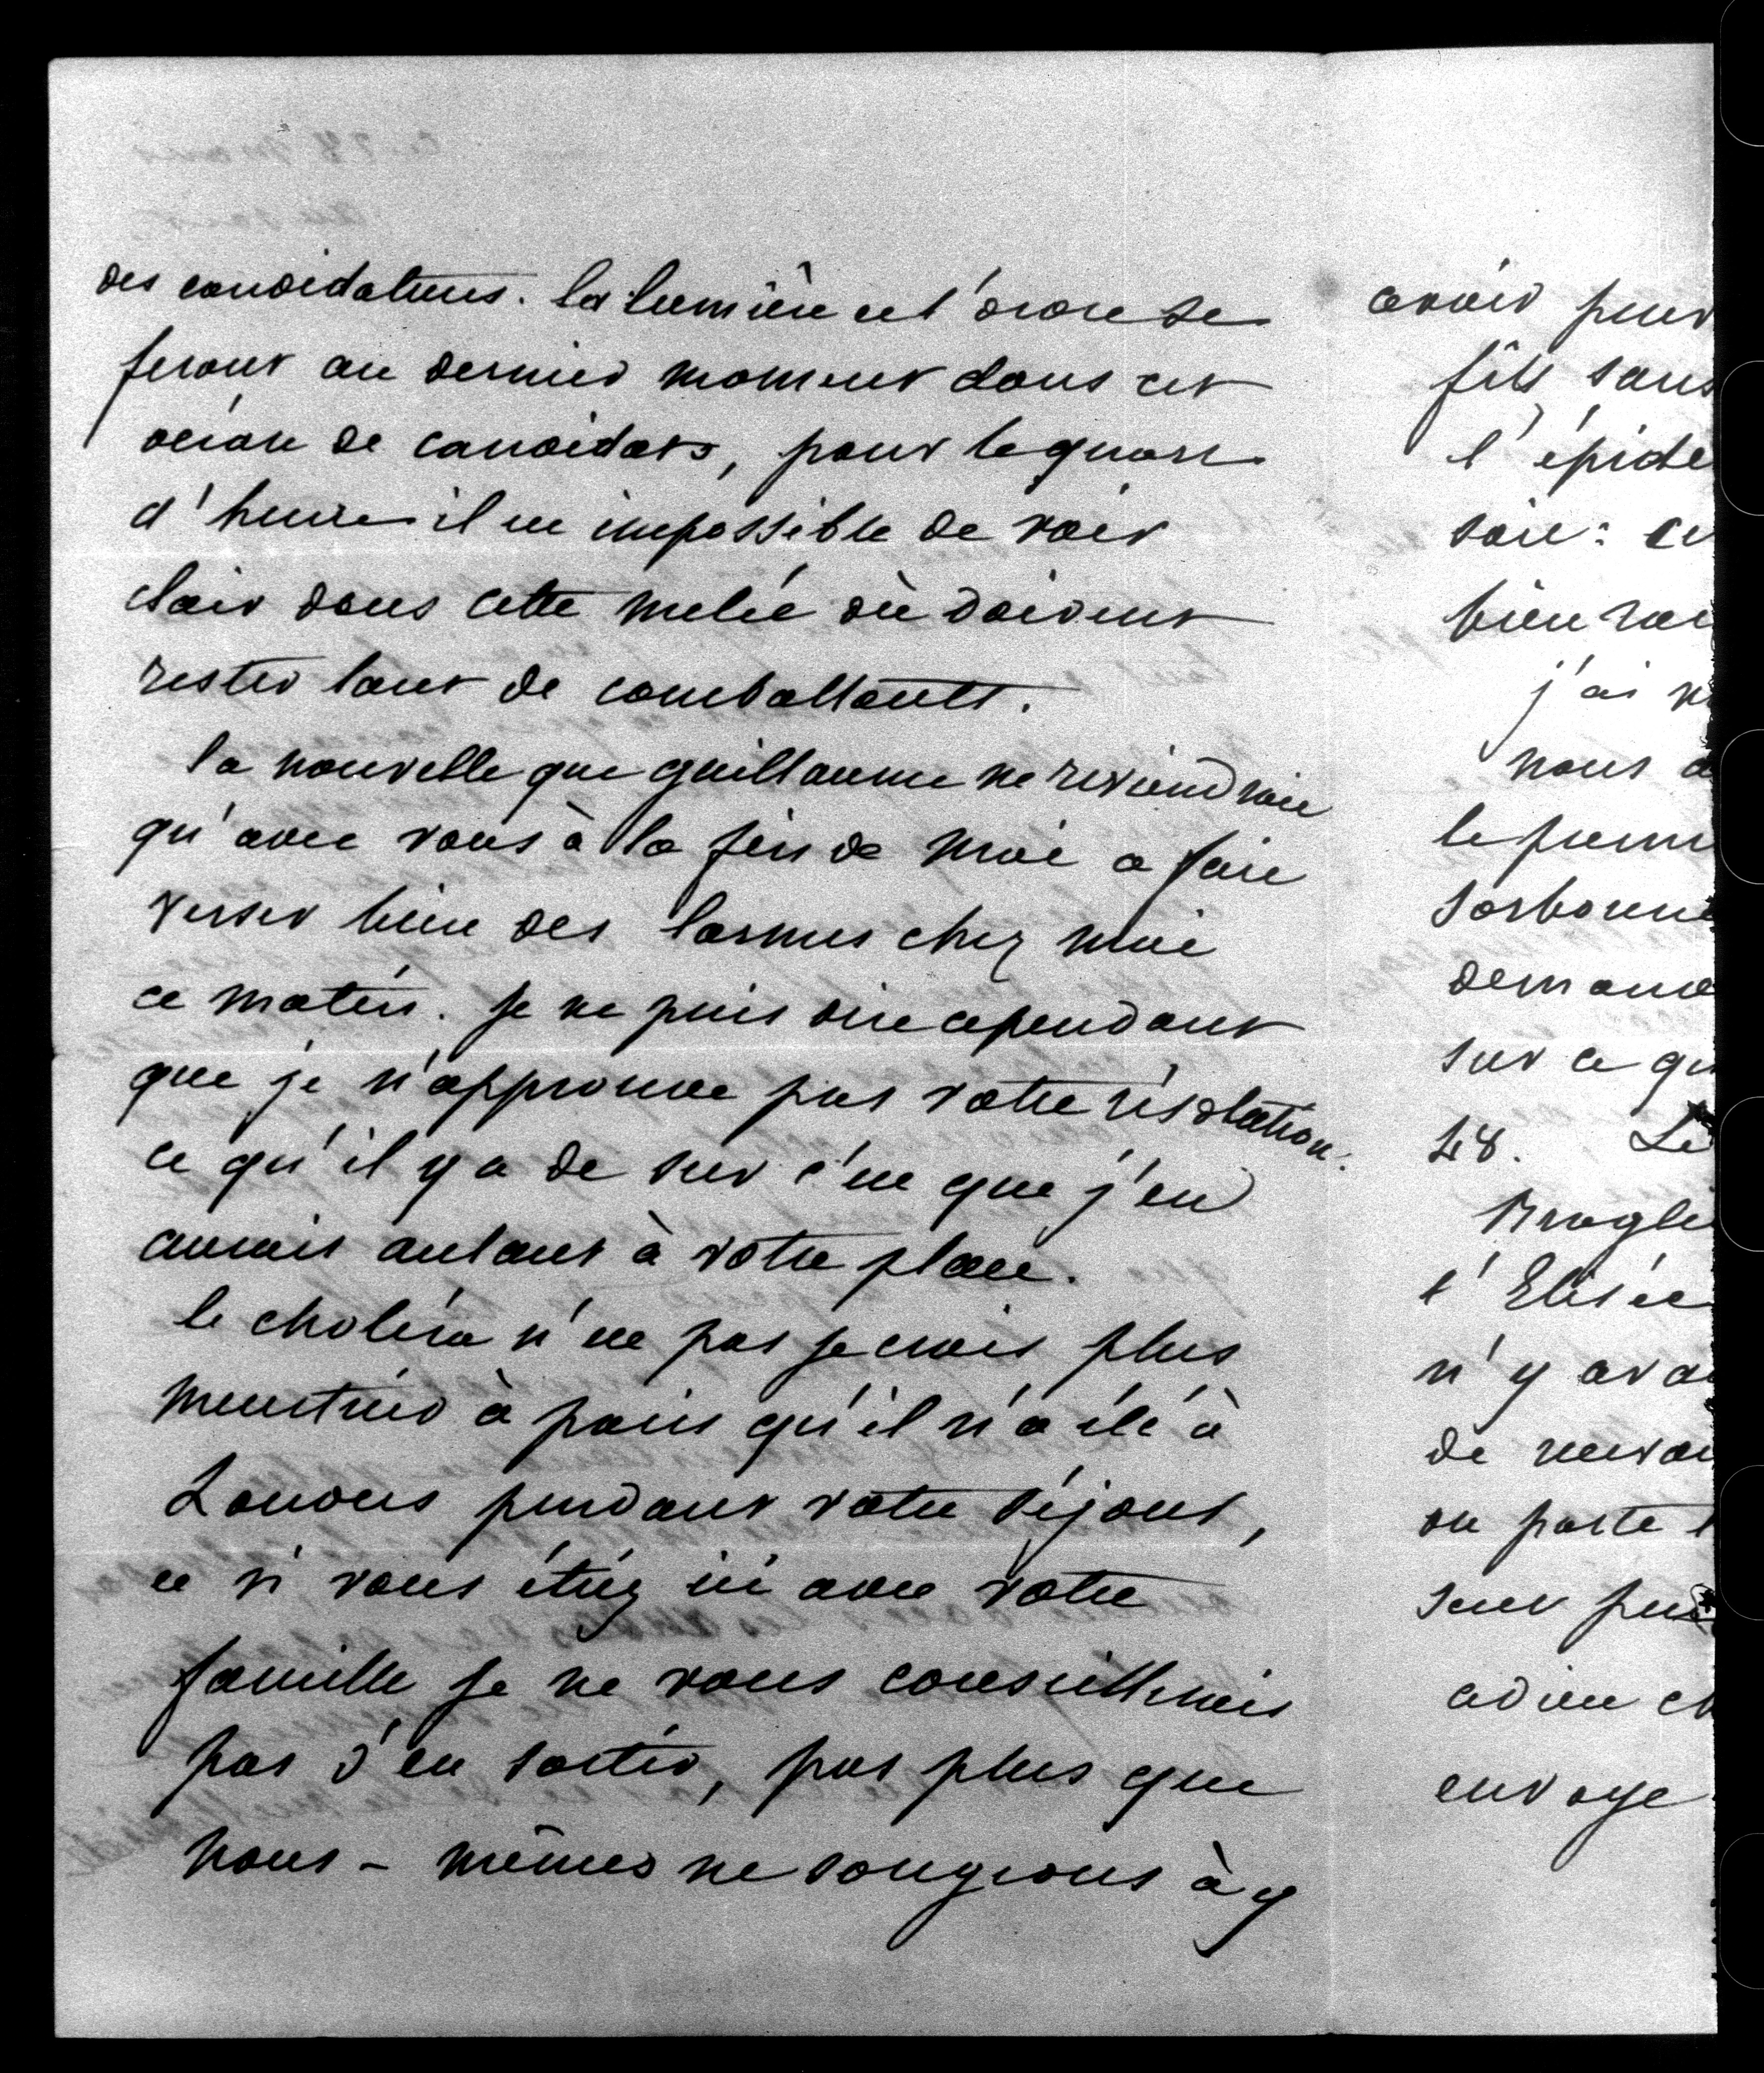 des candidatures. la lumière et l'ordre se
feront au dernier moment dans cet
océan de candidats, pour le quart
d'heure il est impossible de voir
clair dans cette melée où doivent
rester tant de combattants.
la nouvelle que guillaume ne reviendroit
qu'avec vous à la fin de mai a fait
verser bien des larmes chez moi
ce matin. je ne puis dire cependant
que je n'approuve pas votre résolution.
ce qu'il y a de sur c'est que j'en
aurais autant à votre place.
le choléra n'est pas je crois plus
meurtrier à paris qu'il n'a été à
Londres pendant votre séjour,
et si vous étiez ici avec votre
famille je ne vous conseillerais
pas d'en sortir, pas plus que
nous-mêmes ne songeons à y
avoir peur
fils sans
l'épidé
soir: ce
bien
j'ai
nous
le prem
Sorbonne
demand
sur ce qu
48. Le
Brogli
l'Elisée
n'y ava
de
on porte
sont
adieu ch
envoye